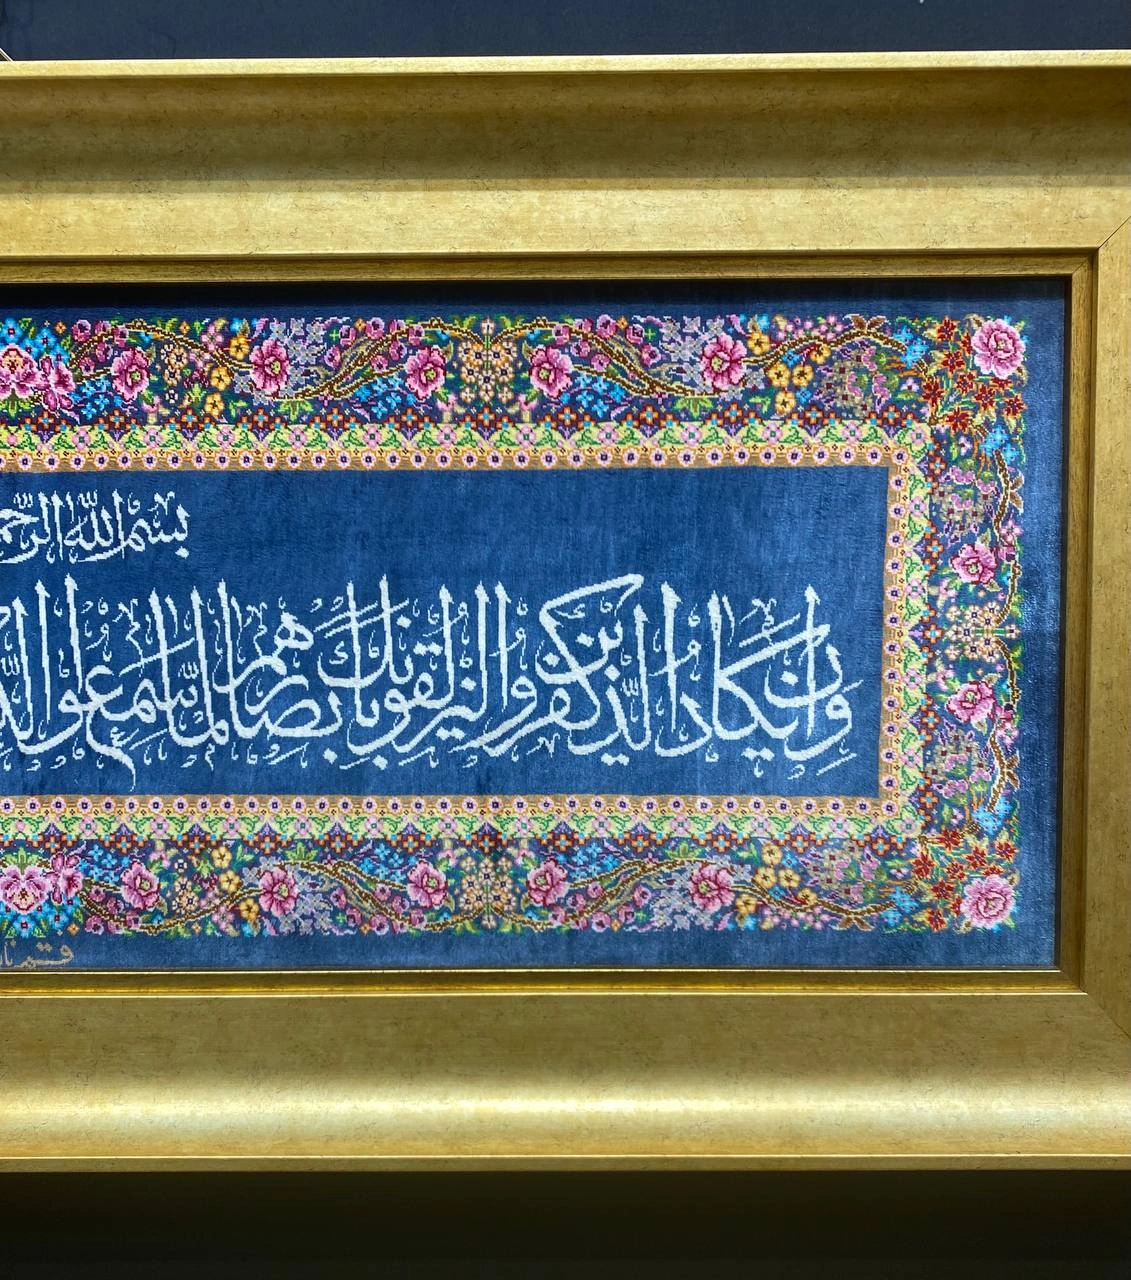 بسم الله الرحم
وَإِن يَكَادُ الَّذِينَ كَفَرُوا لَيُزْلِقُونَكَ بِأَبْصَارِهِمْ لَمَّا سَمِعُوا الذ
قم